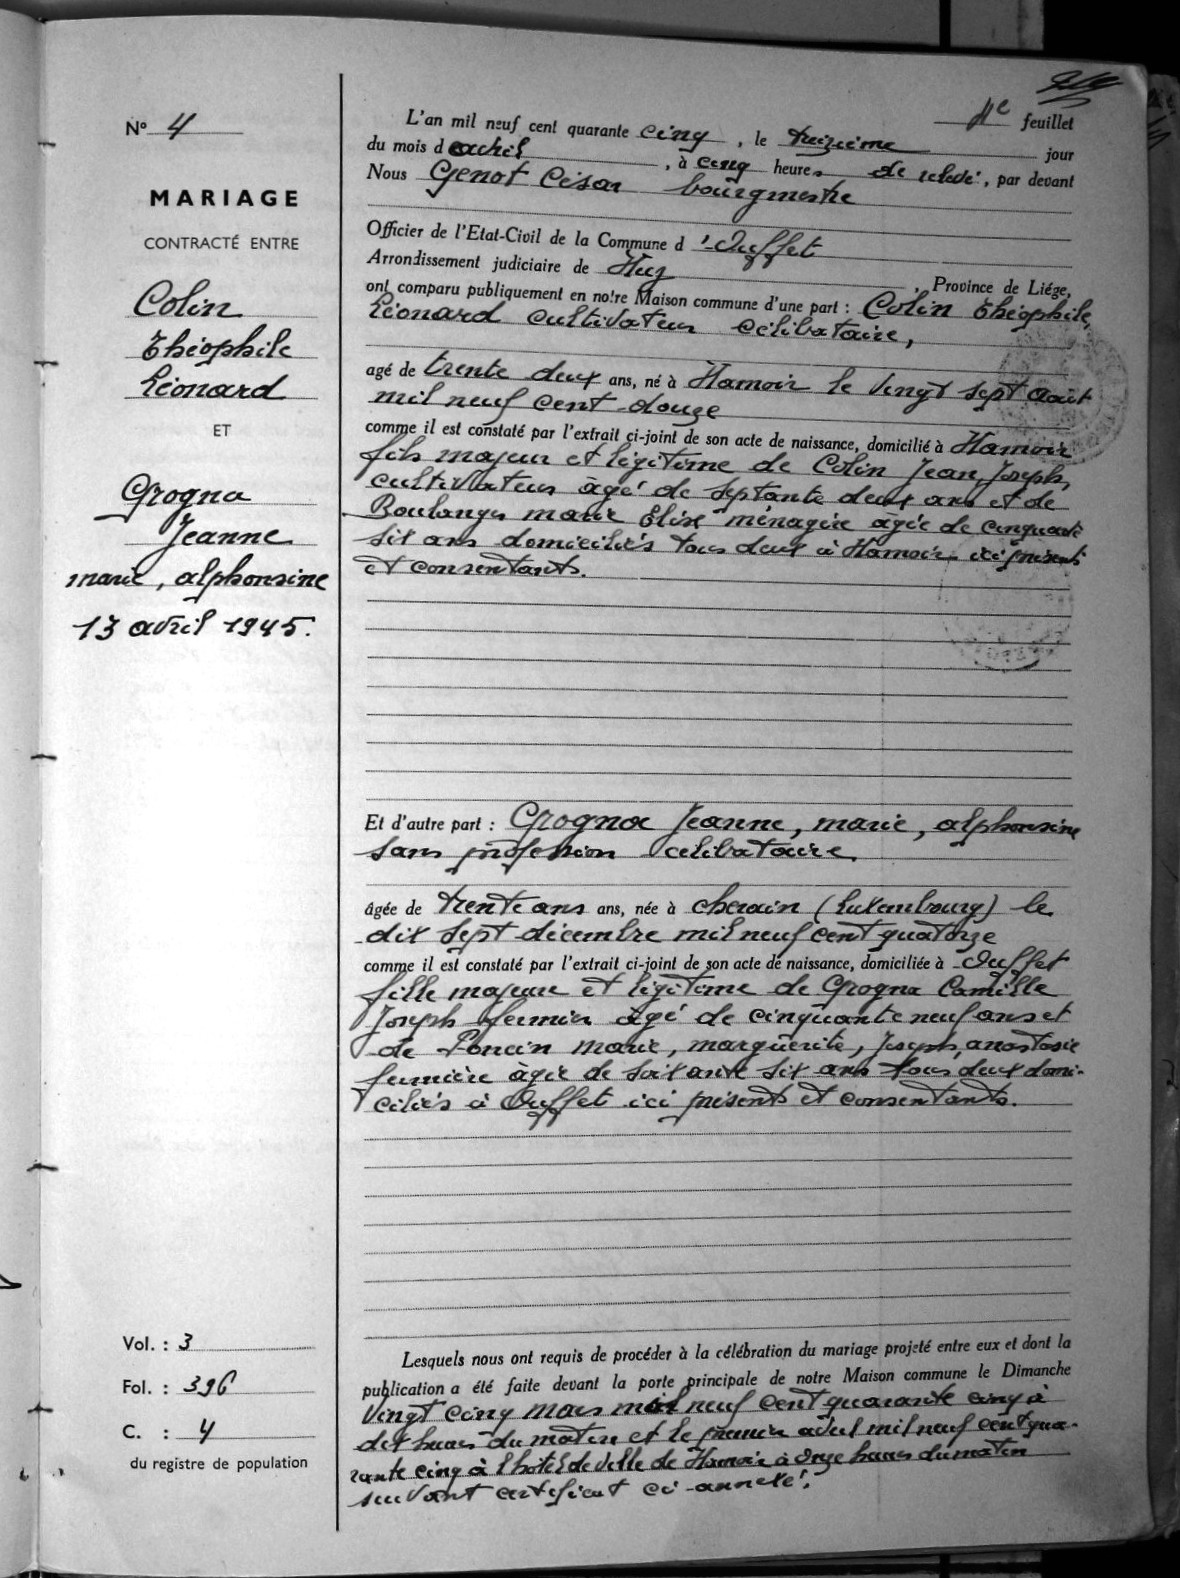 4e feuillet
N° 4
MARIAGE
CONTRACTÉ ENTRE
Colin
Théophile
Léonard
ET
Grogna
Jeanne
marie, alphonsine
13 avril 1945.
Vol. : 3
Fol. : 396
C. : 4
du registre de population
L'an mil neuf cent quarante cinq, le treizième jour
du mois d'avril, à cinq heures de relevé, par devant
Nous Genot César bourgmestre
Officier de l'Etat-Civil de la Commune d'Ouffet
Arrondissement judiciaire de Huy, Province de Liége,
ont comparu publiquement en notre Maison commune d'une part : Colin Théophile,
Léonard cultivateur célibataire,
agé de trente deux ans, né à Hamoir le vingt sept août
mil neuf cent douze
comme il est constaté par l'extrait ci-joint de son acte de naissance, domicilié à Hamoir
fils majeur et légitime de Colin Jean Joseph,
cultivateur âgé de septante deux ans et de
Boulanger marie Elise ménagère âgée de cinquante
six ans domiciliés tous deux à Hamoir ici présents
et consentants.
Et d'autre part : Grogna Jeanne, marie, alphonsine
sans profession célibataire
âgée de trente ans ans, née à cherain (Luxembourg) le
dix sept décembre mil neuf cent quatorze
comme il est constaté par l'extrait ci-joint de son acte de naissance, domiciliée à Ouffet
fille majeure et légitime de Grogna Camille
Joseph fermier âgé de cinquante neuf ans et
de Poncin marie, marguerite, Joseph, anastasie
fermière âgée de soixante six ans tous deux domi-
ciliés à Ouffet ici présents et consentants.
Lesquels nous ont requis de procéder à la célébration du mariage projeté entre eux et dont la
publication a été faite devant la porte principale de notre Maison commune le Dimanche
vingt cinq mars mil neuf cent quarante cinq à
dix heures du matin et le premier avril mil neuf cent qua-
rante cinq à l'hôtel de ville de Hamoir à onze heures du matin
suivant certificat ci-annexé.